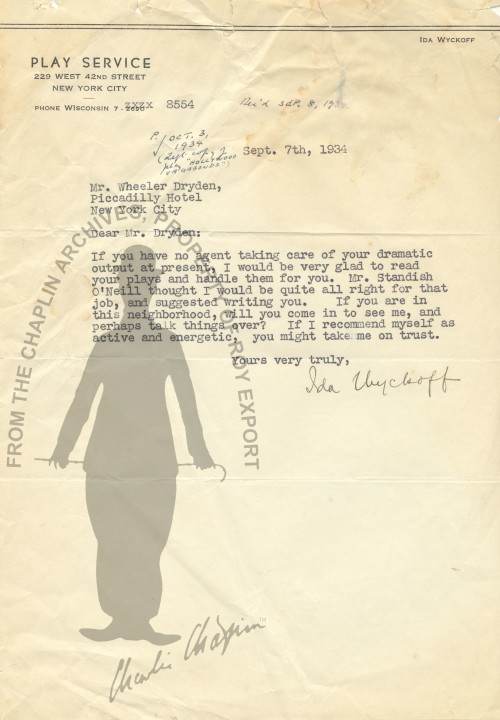 IDA WYCKOFF
PLAY SERVICE
229 WEST 42ND STREET
NEW YORK CITY
PHONE WISCONSIN 7 - 8554
Rec'd Sep. 8, 1934
OCT. 3,
1934
"HOLLYWOOD
VAGABONDS")
Sept. 7th, 1934
Mr. Wheeler Dryden,
Piccadilly Hotel
New York City
Dear Mr. Dryden:
If you have no agent taking care of your dramatic
output at present, I would be very glad to read
your plays and handle them for you. Mr. Standish
O'Neill thought I would be quite all right for that
job, and suggested writing you. If you are in
this neighborhood, will you come in to see me, and
perhaps talk things over? If I recommend myself as
active and energetic, you might take me on trust.
Yours very truly,
Ida Wyckoff
FROM THE CHAPLIN ARCHIVES, PROPERTY OF ROY EXPORT
Charlie Chaplin